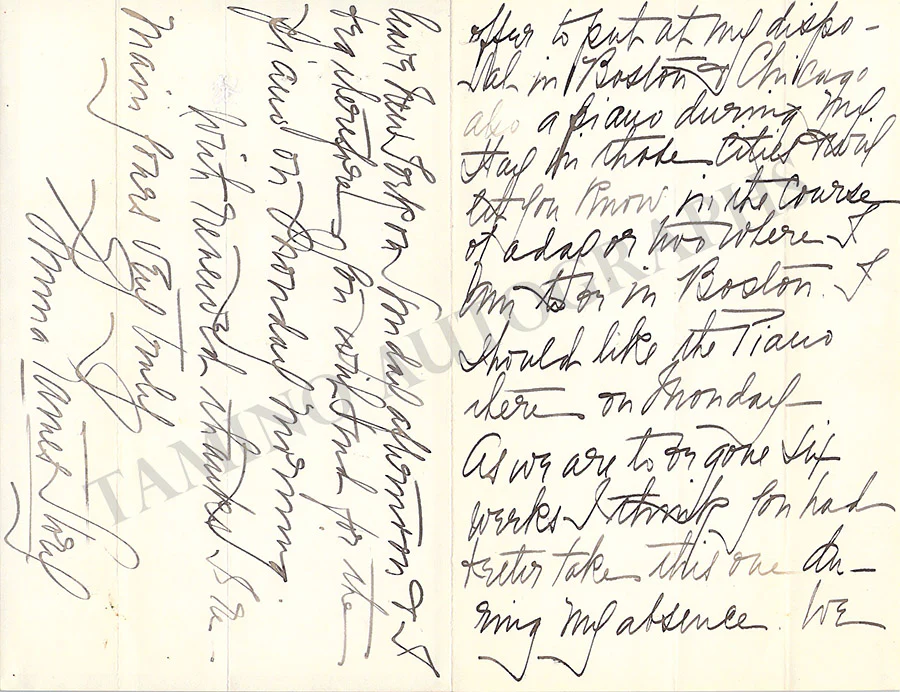 offer to put at my dispo-
sal in Boston & Chicago
also a piano during my
stay in those cities & will
let you know in the course
of a day or two where I
am to be in Boston. I
should like the Piano
there on Monday—
As we are to be gone six
weeks I think you had
better take this one du-
ring my absence. We
leave New York on Sunday afternoon & I
you will send for the
piano on Monday morning
With renewed thanks I re-
main yours very truly
Emma Eames Story
TAMINO AUTOGRAPHS